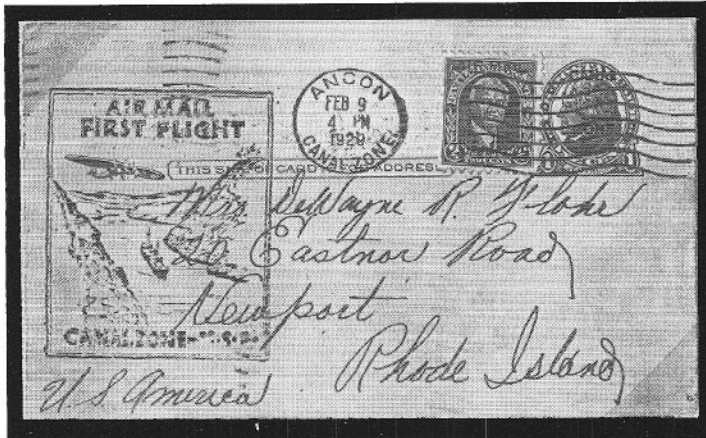 AIR MAIL
FIRST FLIGHT
CANAL ZONE - U.S.A.
ANCON
FEB 9
4 PM
1929
CANAL ZONE
THIS SIDE OF CARD IS FOR ADDRESS
Mrs. DeWayne R.
Eastnor Road
Newport
Rhode Island
U.S America